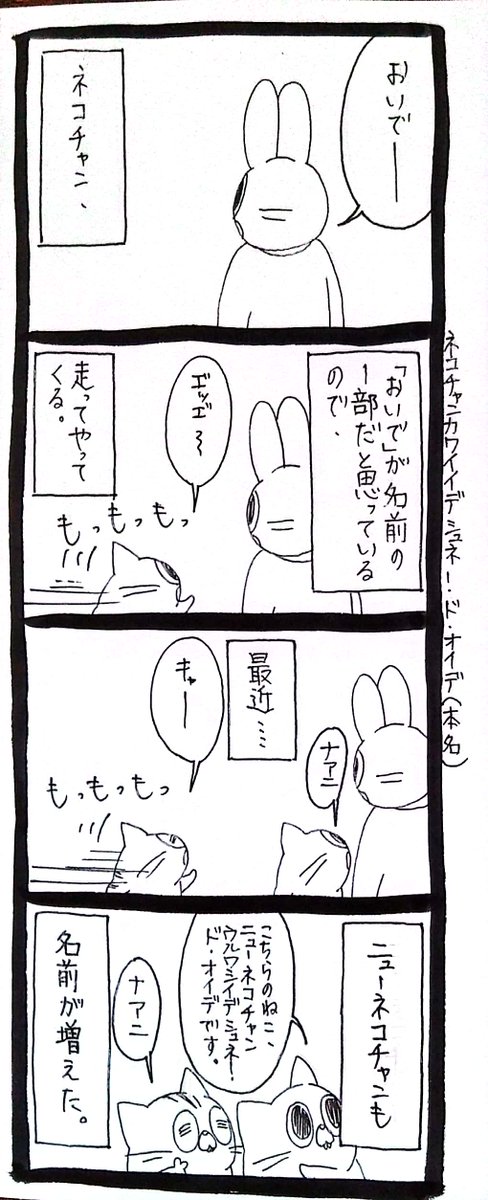 おいでー
ネコチャン、
「おいで」が名前の
一部だと思っている
ので、
走ってやって
くる。
もっもっもっ
ネコチャンカワイイデシュネー・ド・オイデ(本名)
ナアニ
最近…
キャー
もっもっもっ
ニューネコチャンも
こちらのねこ、
ニューネコチャン
ウルワシイデシュネー・
ド・オイデです。
ナアニ
名前が増えた。